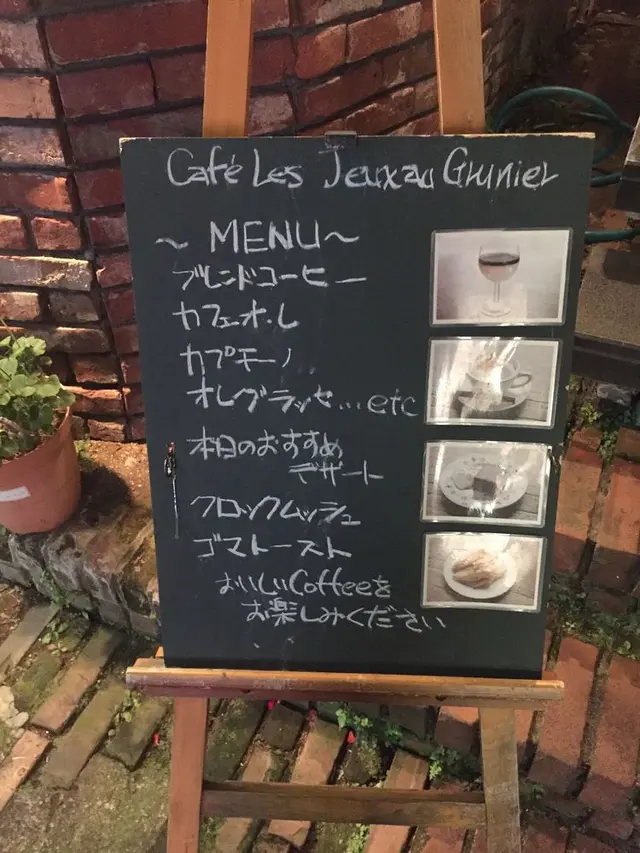 Café Les Jeux au Grenier
~ MENU ~
ブレンドコーヒー
カフェオ・レ
カプチーノ
オレグラッセ...etc
本日のおすすめ
デザート
クロックムッシュ
ゴマトースト
おいしいCoffeeを
お楽しみください